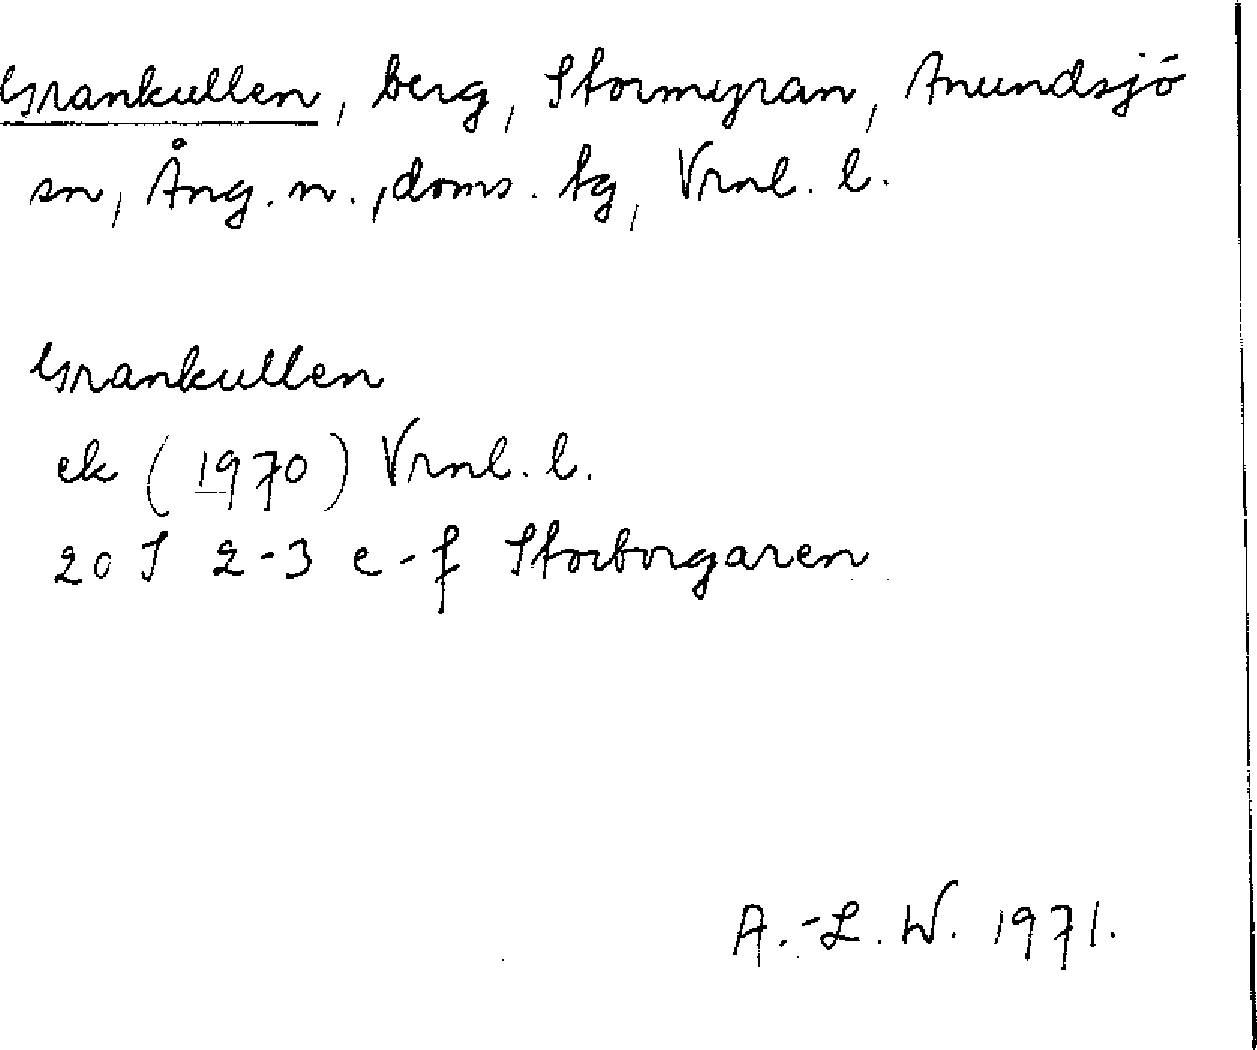 Grankullen, berg, Stormyran, Anundsjö
sn, Ång. n., doms. tg, Vrnl. l.
Grankullen
ek (1970) Vrnl. l.
20 I 2-3 e-f Storborgaren
A.-L. W. 1971.